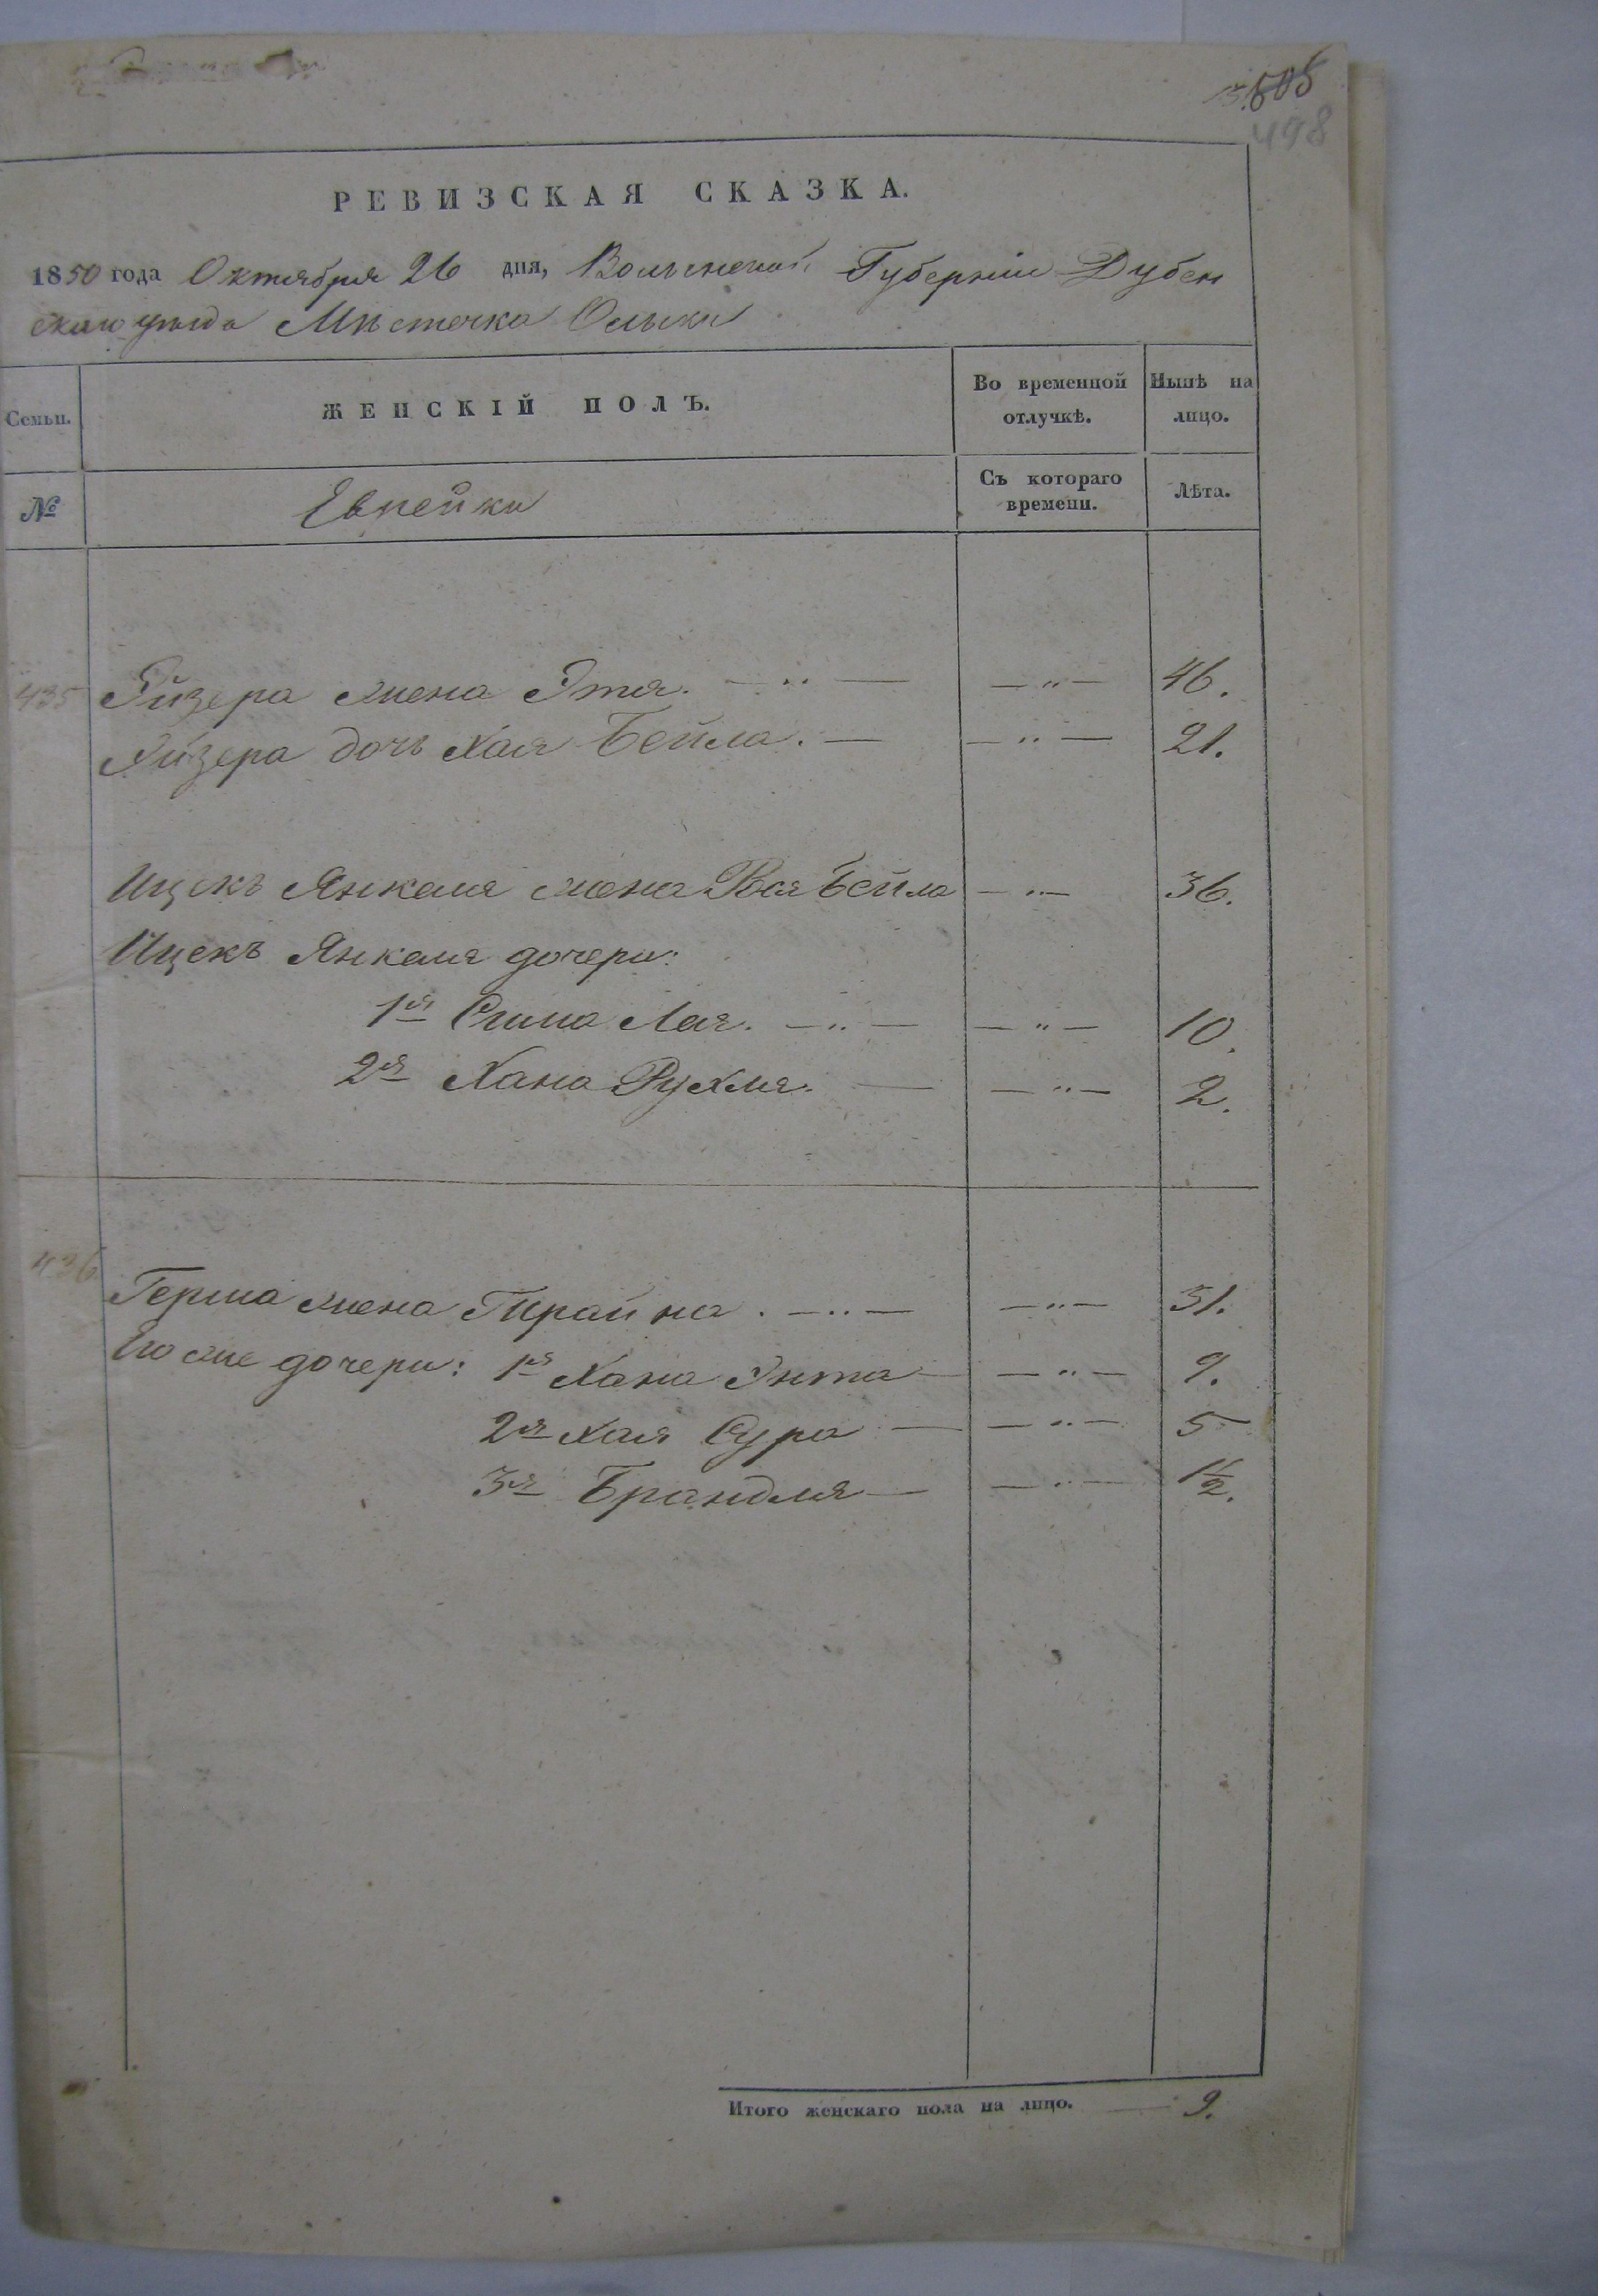 498
РЕВИЗСКАЯ СКАЗКА.
1850 года Октября 26 дня, Волынской Губерніи Дубен
скаго уѣзда Мѣстечка Олыки
Семьи.
ЖЕНСКІЙ ПОЛЪ.
Во временной отлучкѣ.
Нынѣ на лицо.
№
Еврейки
Съ котораго времени.
Лѣта.
435 жена Этя. — „ — — „ — 46.
дочь Хая Бейла. — — „ — 21.
Ицекъ Янкеля жена Рося Бейла — „ — 36.
Ицекъ Янкеля дочери:
1я Сима Лая. — „ — — „ — 10.
2я Хана Рухля. — — „ — 2.
436 Герша жена — „ — — „ — 31.
Его же дочери: 1я Хана Энта — — „ — 9.
2я Хая Сура — — „ — 5
3я Брандля — — „ — 1½.
Итого женскаго пола на лицо. — 9.